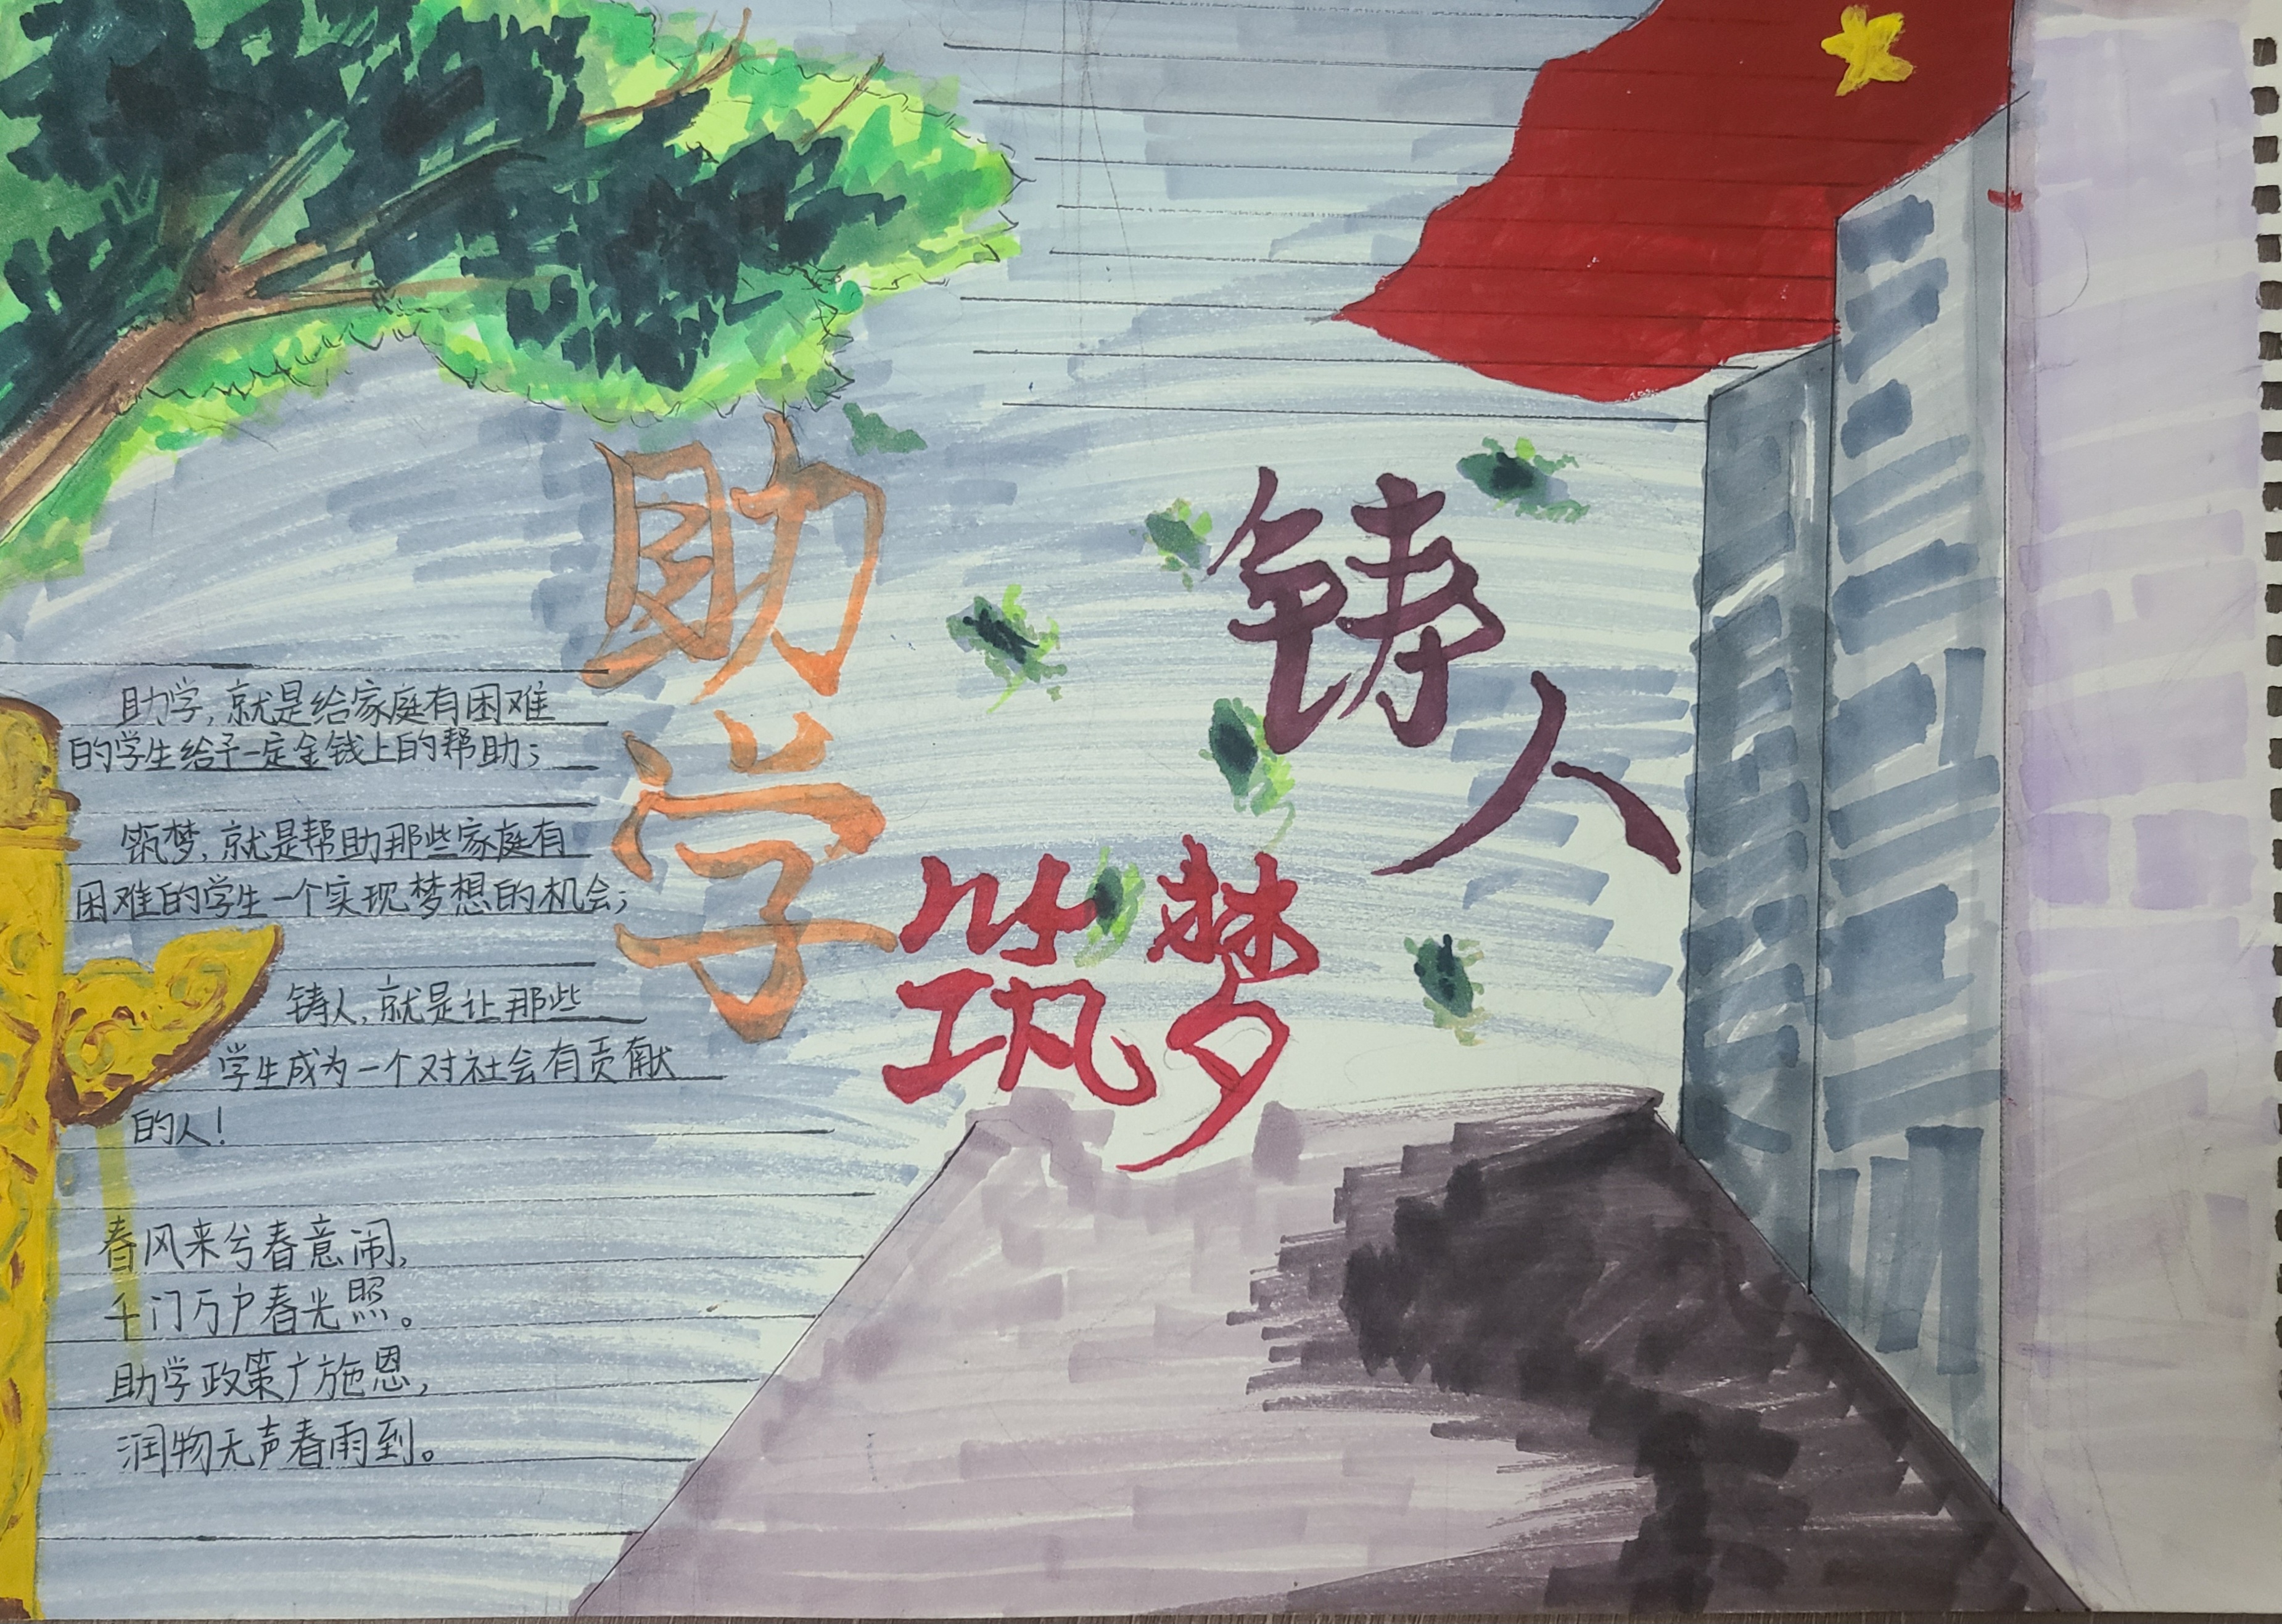 助学
筑梦
铸人
助学,就是给家庭有困难
的学生给予一定金钱上的帮助;
筑梦,就是帮助那些家庭有
困难的学生一个实现梦想的机会;
铸人,就是让那些
学生成为一个对社会有贡献
的人!
春风来兮春意闹,
千门万户春光照。
助学政策广施恩,
润物无声春雨到。